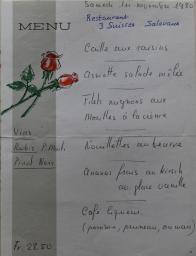 Samedi 1er novembre 1980
Restaurant
3 Suisses
MENU
Caille aux raisins
Assiette salade mêlée
Filets mignons aux
Morilles à la crème
Vins
Pinot Noir
Nouillettes au beurre
Ananas frais au kirsch
et glace vanille
Café liqueur
(pomme, pruneau, ou marc)
Fr. 28.50